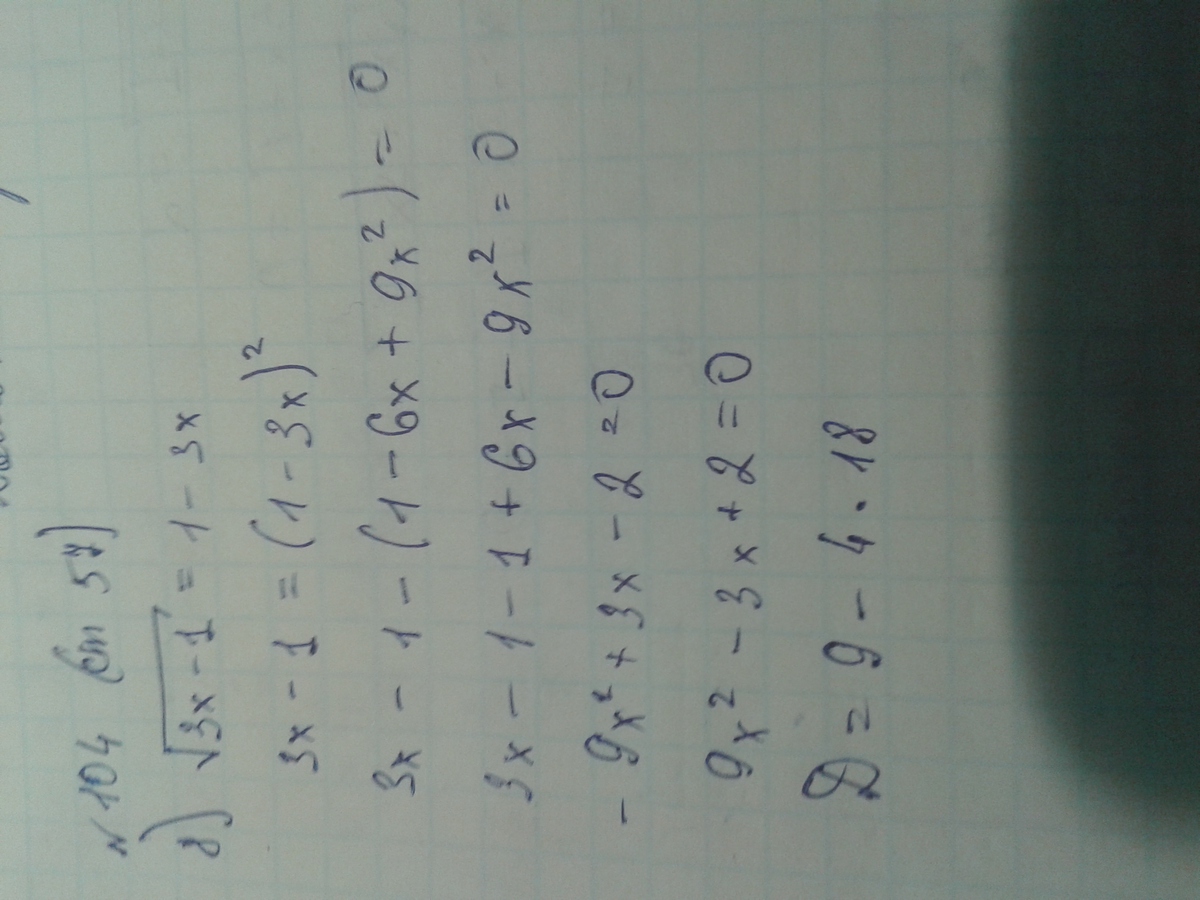 № 104 (ст 57)
8) √3x - 1 = 1 - 3x
3x - 1 = (1 - 3x)²
3x - 1 - (1 - 6x + 9x²) = 0
3x - 1 - 1 + 6x - 9x² = 0
- 9x² + 3x - 2 = 0
9x² - 3x + 2 = 0
D = 9 - 4 · 18